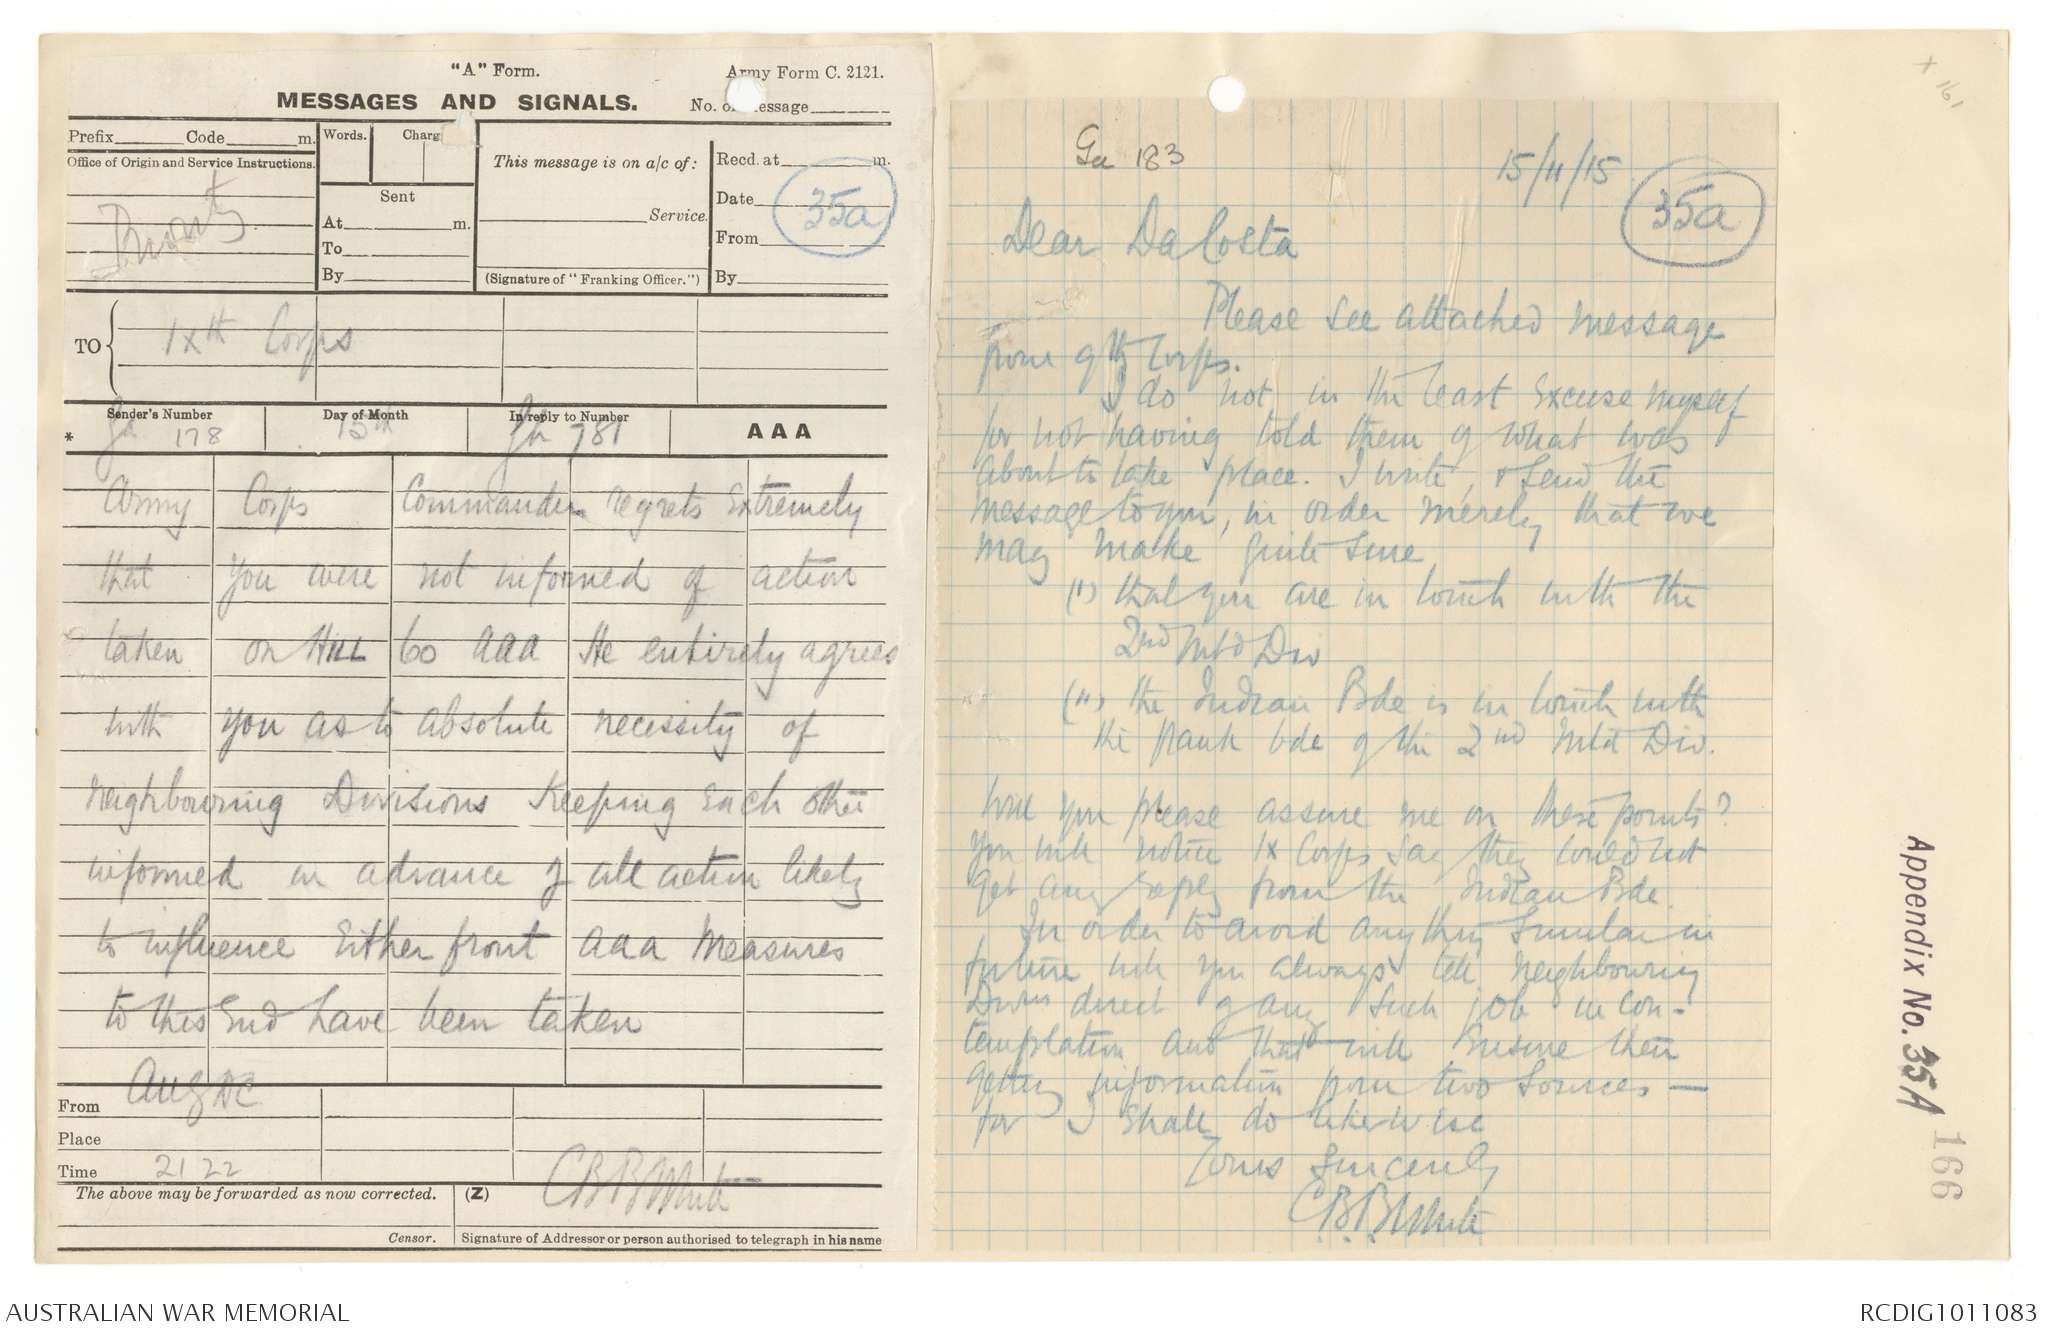 "A" Form.
Army Form C. 2121.
MESSAGES AND SIGNALS.
No. of Message
Prefix Code m.
Words. Charg
This message is on a/c of:
Recd. at m.
Office of Origin and Service Instructions.
Priority
Sent
At m.
To
By
Service.
(Signature of "Franking Officer.")
Date
From
By
35a
TO
IXth Corps
Sender's Number
Day of Month
In reply to Number
AAA
* Ga 178
15th
Gh 781
Army Corps Commander regrets Extremely
that you were not informed of action
taken on HILL 60 aaa He entirely agrees
with you as to absolute necessity of
Neighbouring Divisions Keeping Each other
informed in advance of all action likely
to influence Either front aaa Measures
to this End have been taken
From
Place
Time
AusDC
2122
The above may be forwarded as now corrected.
(Z)
CBBWhite
Censor.
Signature of Addressor or person authorised to telegraph in his name
Ga 183
15/11/15
35a
Dear DaCosta
Please see attached message
from 9th Corps.
I do not in the least Excuse myself
for not having told them of what was
about to take place. I write, & send the
message to you, in order merely that we
may make quite sure
(i) that you are in touch with the
2nd Mtd Div
(ii) the Indian Bde is in touch with
the flank bde of the 2nd Mtd Div.
Will you please assure me on these points?
You will notice IX Corps say they could not
get any reply from the Indian Bde.
In order to avoid anything similar in
future will you always tell neighbouring
Divns direct of any such job in con-
templation and that will Ensure their
getting information from two sources —
for I shall do likewise
Yours Sincerely
C.B.B.White
161
Appendix No. 35A
166
AUSTRALIAN WAR MEMORIAL
RCDIG1011083